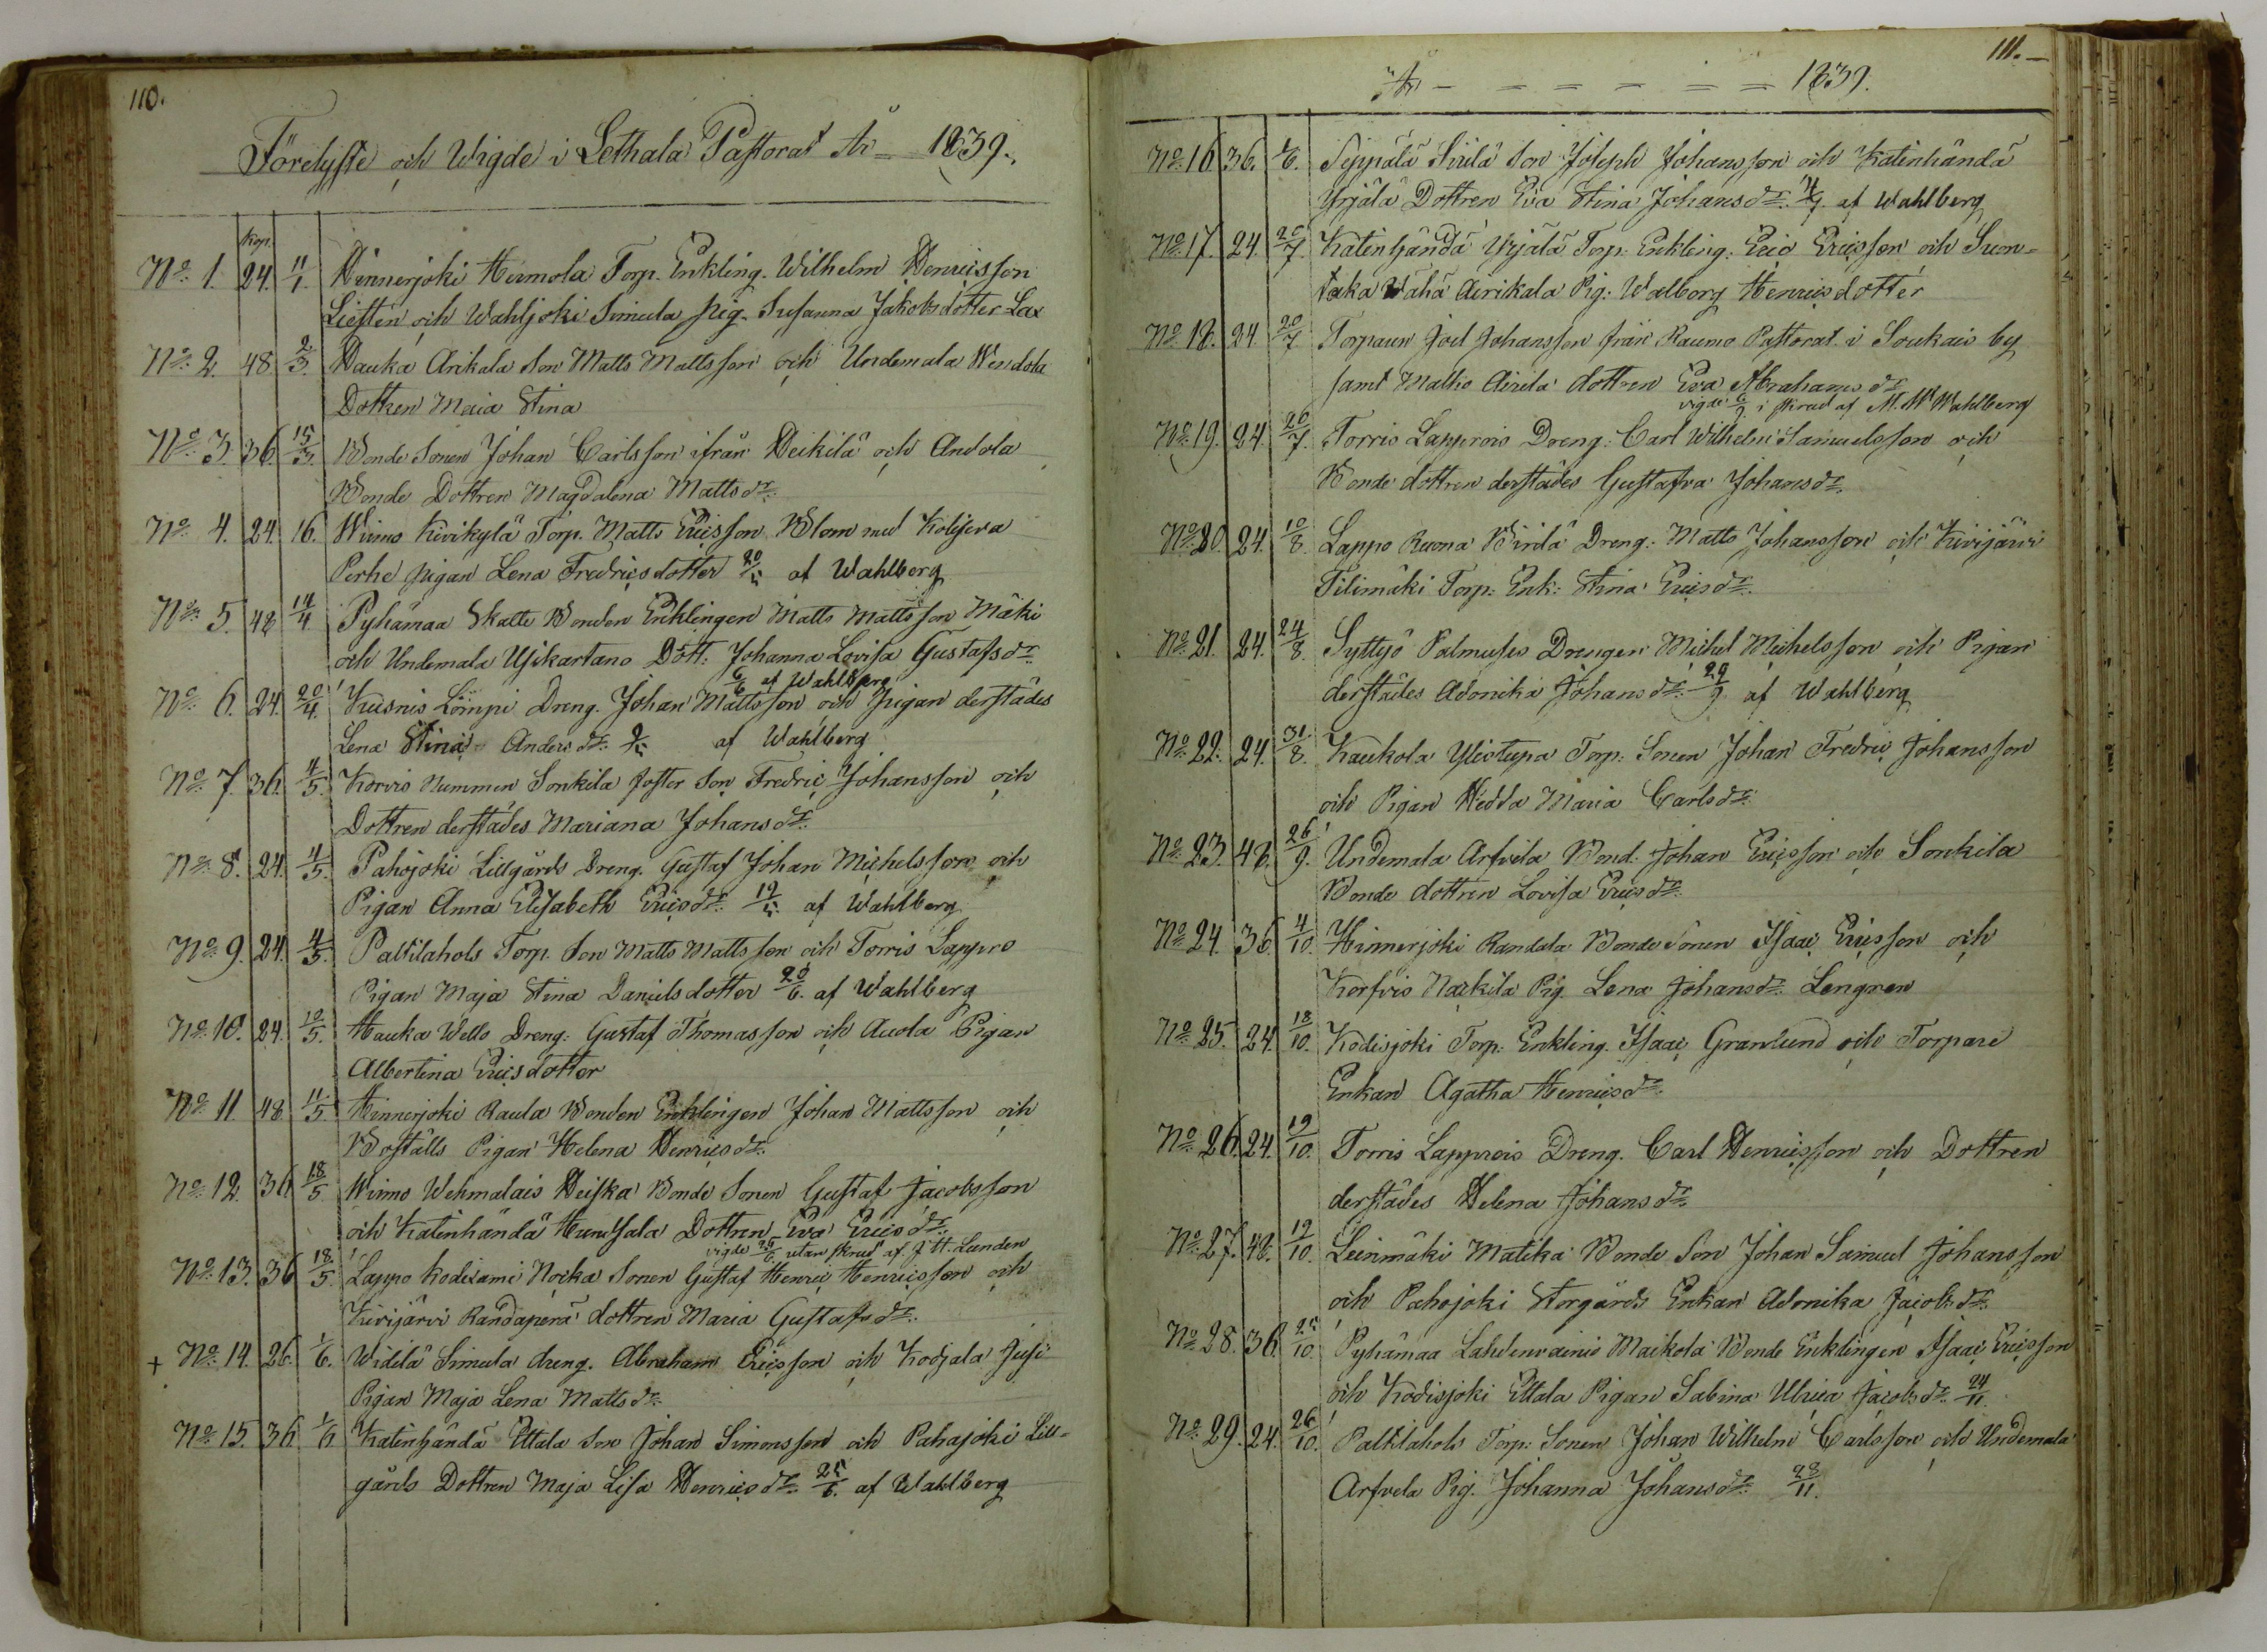 110.
Förelyste och Wigde i Lethala Pastorat År 1839.
Kop.
No 1. 24. 11/1. Hinnerjoki Hermola Torp. Enkling. Wilhelm Henricsson
Liesten och Wahljoki Simula pig. Susanna Jakobsdotter Lax
No 2. 48. 2/3. Hauka Arikala Son Matts Mattsson och Undemala Wendola
Dottren Maia Stina
No 3. 36. 15/3. Bonde Sonen Johan Carlsson ifrån Heikilä och Andola
Bonde Dottren Magdalena Mattsdr.
No 4. 24. 16. Wirmo Kivikylä Torp. Matts Ericsson Blom med Kolijeva
Perhe pigan Lena Fredricsdotter 20/5 af Wahlberg
No 5. 48 14/4 Pyhämaa Skatte Bonden Enklingen Matts Mattsson Mäki
och Undemala Ujikartano Dött: Johanna Lovisa Gustafsdr.
6/6 af Wahlberg
No 6. 24. 20/4. Kusnis Lömpi Dreng. Johan Mattsson och Pigan derstädes
Lena Stina Andersdr. 9/5 af Wahlberg
No 7. 36. 4/5. Korvis Nummen Sonkila foster Son Fredric Johansson och
Dottren derstädes Mariana Johansdr.
No 8. 24. 4/5. Pahojoki Lillgårds Dreng. Gustaf Johan Michelsson och
Pigan Anna Elisabeth Ericsdr. 19/5. af Wahlberg
No 9. 24. 4/5. Paltilahols Torp. Son Matts Mattsson och Torris Lappro
Pigan Maja Stina Danielsdotter 20/6. af Wahlberg
No 10. 24. 10/5. Hauka Wello Dreng: Gustaf Thomasson och Auola Pigan
Albertina Ericsdotter
No 11. 48 11/5. Hinnerjoki Raula Bonden Enklingen Johan Mattsson och
Boställs Pigan Helena Henricsdr.
No 12. 36 18/5 Wirmo Wehmalais Heiska Bonde Sonen Gustaf Jacobsson
och Katinhändä Hunsala Dottren Eva Ericsdr.
vigde 26/6 utan skrud af J. H. Lunden
No 13. 36 18/5. Lappo Kodisami Nocka Sonen Gustaf Henric Henricsson och
Kivijärvi Randaperä dottren Maria Gustafsdr.
+ No 14. 26. 1/6. Widilä Simula dreng. Abraham Ericsson och Kodjala Jusi
Pigan Maja Lena Mattsdr.
No 15. 36. 1/6 Katinhändä Uttala Son Johan Simonsson och Pahajoki Lill-
gårds Dottren Maja Lisa Henricsdr. 25/6. af Wahlberg
111.
År 1839.
No 16. 36. 1/6. Seppälä Sirilä Son Joseph Johansson och Katinhändä
Yrjälä Dottren Eva Stina Johansdr. 14/7. af Wahlberg
No 17. 24. 20/7. Katinhändä Yrjälä Torp: Enkling: Eric Ericsson och Suon-
taka Wähä Airikala Pig: Walborg Henricsdotter
No 18. 24. 20/7 Torparen Joel Johansson från Raumo Pastorat i Soukais by
samt Mallio Airila dottren Eva Abrahamsdr
vigde 6/9 i skrud af M. W. Wahlberg
No 19. 24 20/7. Torris Lapprois Dreng: Carl Wilhelm Samuelsson och
Bonde dottren derstädes Gustafva Johansdr.
No 20. 24. 10/8 Lappo Ruona Birilä Dreng: Matts Johansson och Kivijärvi
Tilimäki Torp: Enk: Stina Ericsdr.
No 21. 24. 24/8. Syttyö Palmuses Drengen Michel Michelsson och Pigan
derstädes Adonika Johansdr. 29/9 af Wahlberg
No 22. 24. 31/8. Kaukola Yliotupa Torp: Sonen Johan Fredric Johansson
och Pigan Hedda Maria Carlsdr.
No 23. 48. 26/9. Undemala Arfvela Bond. Johan Ericsson och Sonkila
Bonde dottren Lovisa Ericsdr.
No 24. 36 4/10. Hinnerjoki Randala Bonde Sonen Isaac Ericsson och
Korfvis Narkila Pig. Lena Johansdr. Lengren
No 25. 24. 18/10. Kodisjoki Torp: Enkling. Isaac Granlund och Torpare
Enkan Agatha Henricsdr.
No 26. 24. 19/10. Torris Lapprois Dreng. Carl Henricsson och Dottren
derstädes Helena Johansdr
No 27. 48. 19/10. Leinmäki Matika Bonde Son Johan Samuel Johansson
och Pahojoki Storgårds Enkan Adonika Jacobsdr.
No 28. 36. 25/10 Pyhämaa Lahdenvainio Maikola Bonde Enklingen Isaac Ericsson
och Kodisjoki Ettala Pigan Sabina Ulrica Jacobsdr 24/11.
No 29. 24. 26/10. Paltilahols Torp: Sonen Johan Wilhelm Carlsson och Undemala
Arfvela Pig. Johanna Johansdr. 28/11.